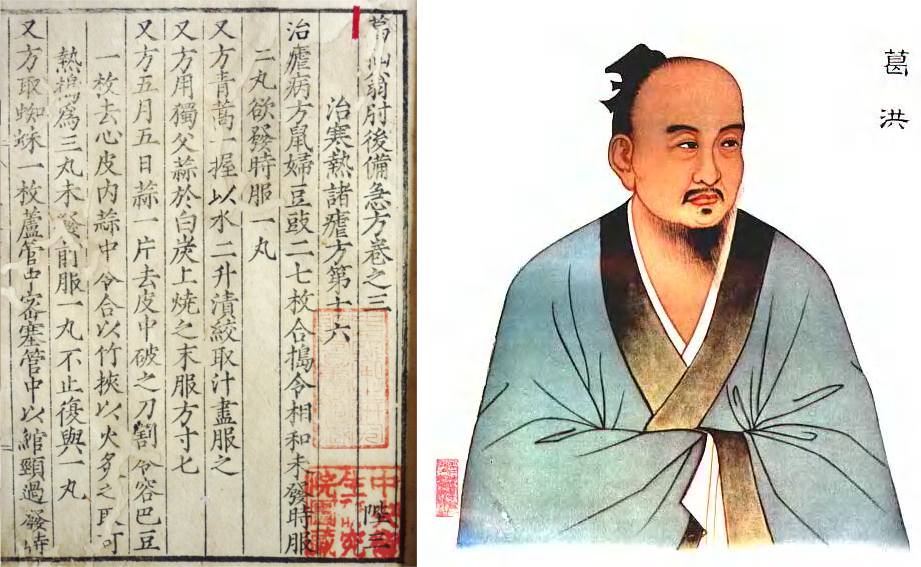 葛仙翁肘後備急方卷之三 陛三
治寒熱諸瘧方第十六
治瘧病方鼠婦豆豉二七枚合搗令相和未發時服
二丸欲發時服一丸
又方青蒿一握以水二升漬絞取汁盡服之
又方用獨父蒜於白炭上燒之末服方寸匕
又方五月五日蒜一片去皮中破之刀割令容巴豆
一枚去心皮內蒜中令合以竹挾以火炙之取可
熱搗爲三丸未發前服一丸不止復與一丸
又方取蜘蛛一枚蘆管中密塞管中以綰頸過發時
葛洪